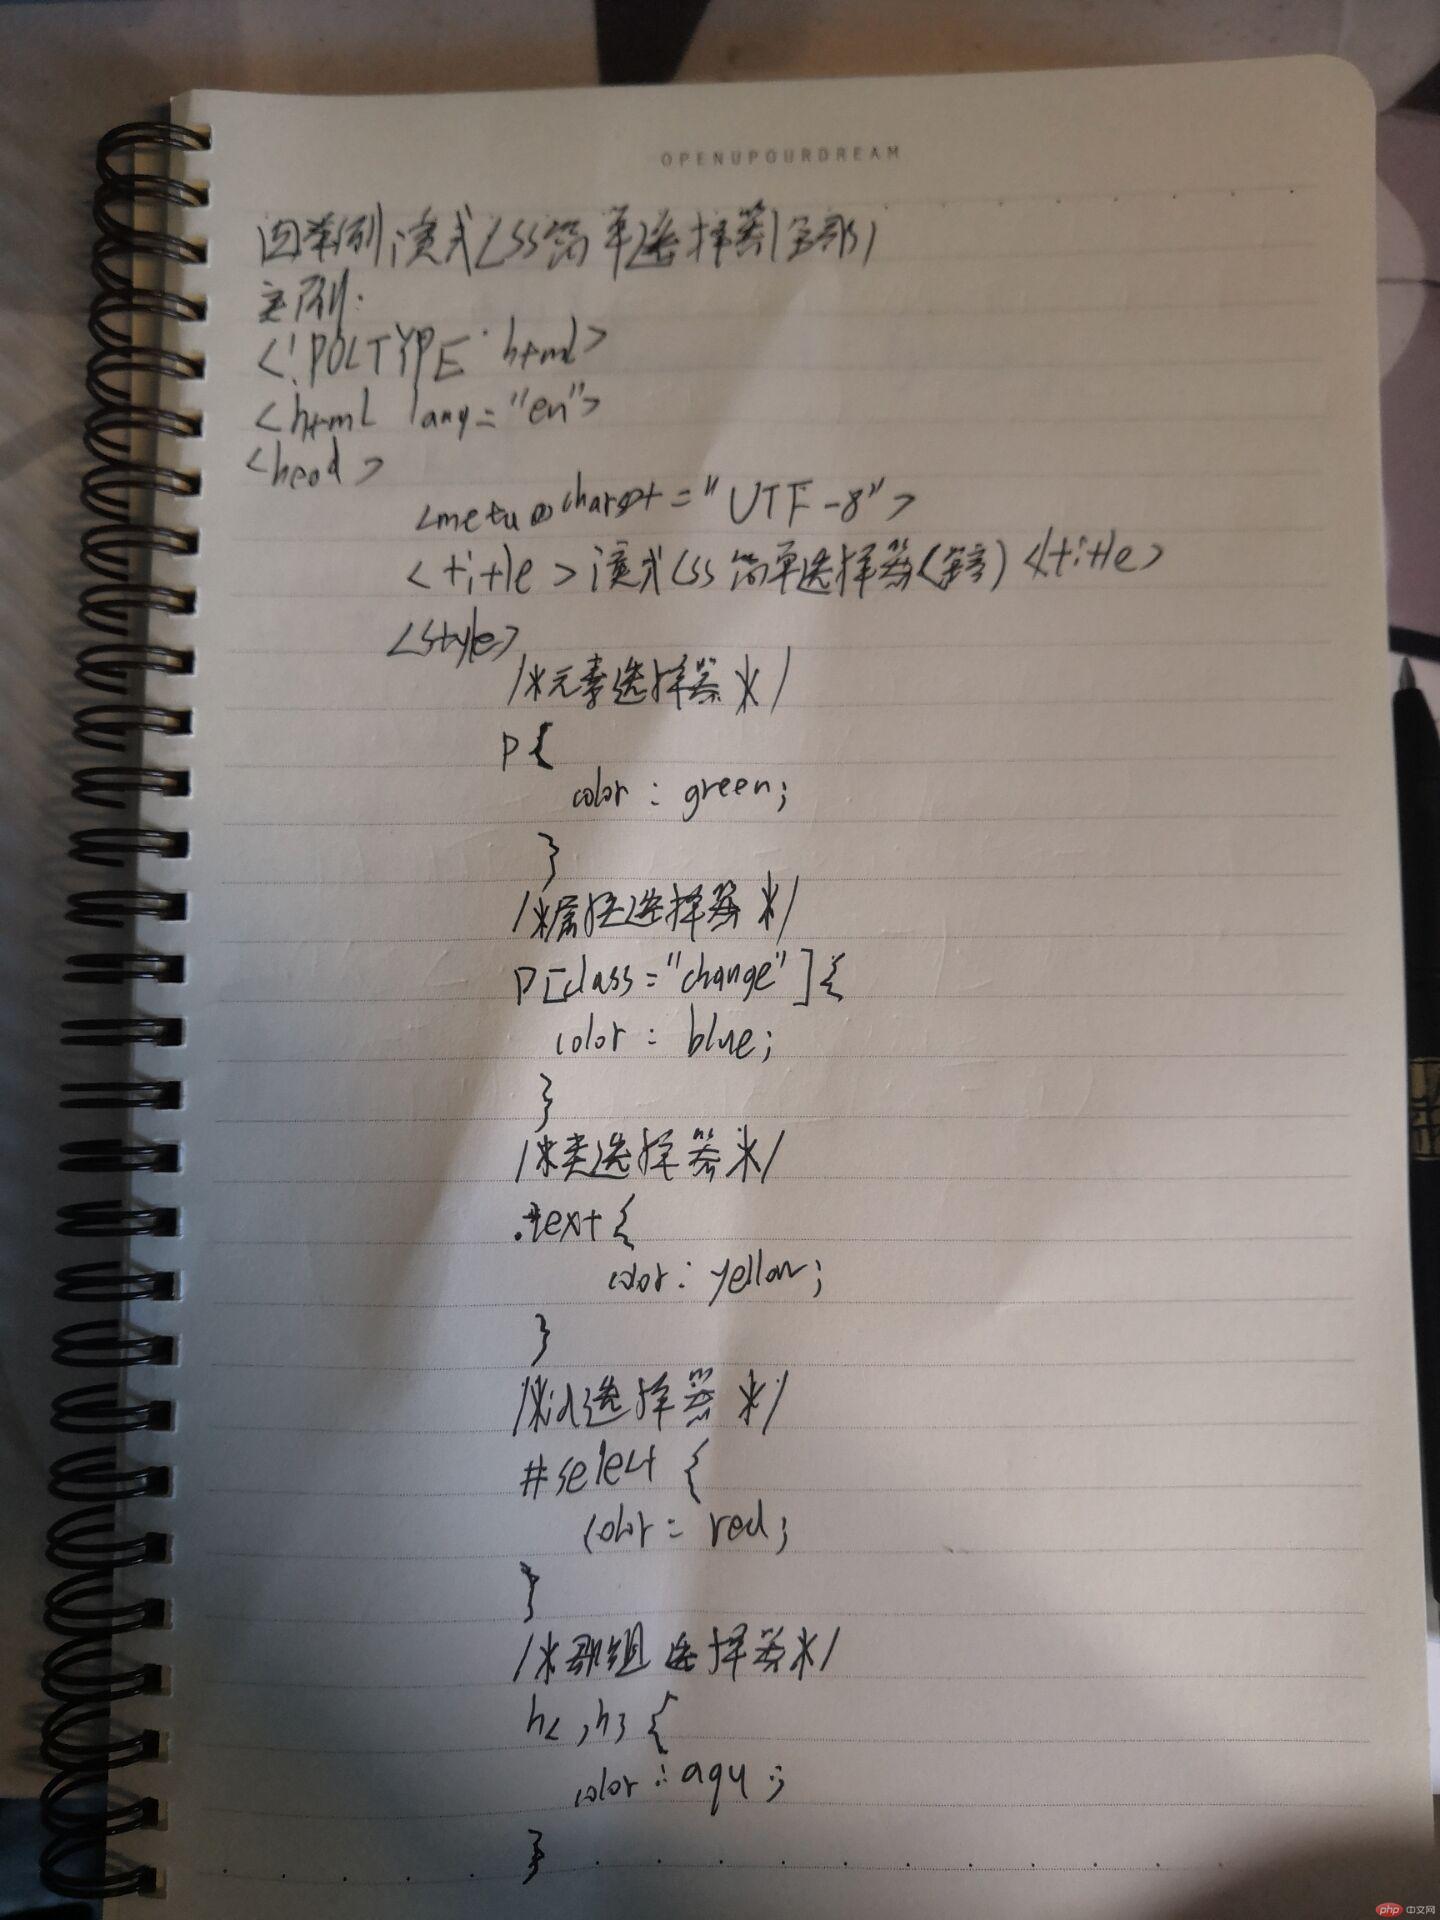 OPENUPOURDREAM
举例演式CSS简单选择器(全部)
实例:
<!DOCTYPE html>
<html lang="en">
<head>
<meta charset="UTF-8">
<title>演式CSS简单选择器(全部)</title>
<style>
/*元素选择器*/
p{
color: green;
}
/*属性选择器*/
p[class="change"]{
color: blue;
}
/*类选择器*/
.text{
color: yellow;
}
/*id选择器*/
#select {
color: red;
}
/*群组选择器*/
h2,h3{
color: aqu;
}
php 中文网